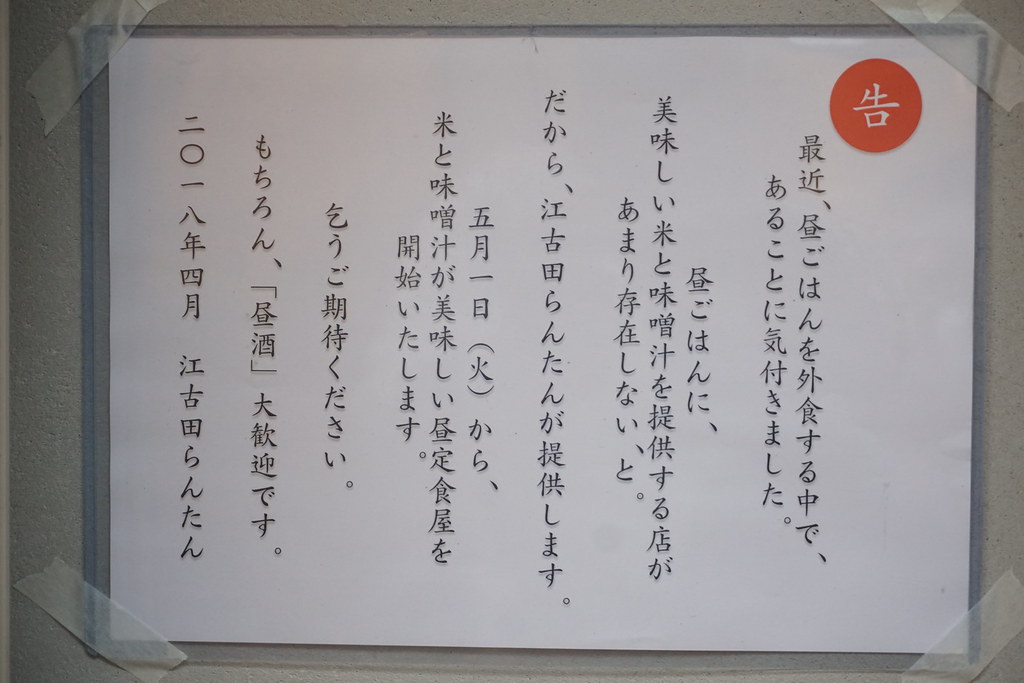 告
最近、昼ごはんを外食する中で、
あることに気付きました。
昼ごはんに、
美味しい米と味噌汁を提供する店が
あまり存在しない、と。
だから、江古田らんたんが提供します。
五月一日（火）から、
米と味噌汁が美味しい昼定食屋を
開始いたします。
乞うご期待ください。
もちろん、「昼酒」大歓迎です。
二〇一八年四月　江古田らんたん